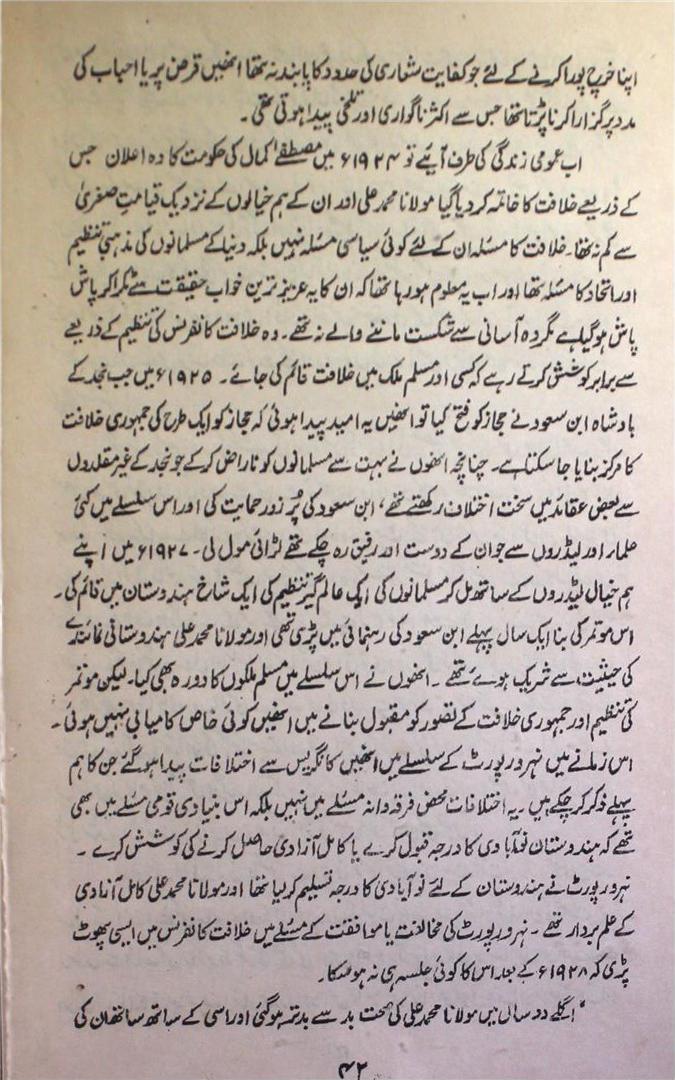 اپنا خرچ پورا کرنے کے لئے جو کفایت شعاری کی حدود کا پابند نہ تھا انھیں قرض پر یا احباب کی
مدد پر گزارا کرنا پڑتا تھا جس سے اکثر ناگواری اور تلخی پیدا ہوتی تھی۔
اب عمومی زندگی کی طرف آیئے تو ۱۹۲۴ء میں مصطفےٰ کمال کی حکومت کا وہ اعلان جس
کے ذریعے خلافت کا خاتمہ کر دیا گیا مولانا محمد علی اور ان کے ہم خیالوں کے نزدیک قیامتِ صغریٰ
سے کم نہ تھا۔ خلافت کا مسئلہ ان کے لئے کوئی سیاسی مسئلہ نہیں بلکہ دنیا کے مسلمانوں کی مذہبی تنظیم
اور اتحاد کا مسئلہ تھا اور اب یہ معلوم ہو رہا تھا کہ ان کا یہ عزیز ترین خواب حقیقت سے ٹکرا کر پاش
پاش ہو گیا ہے مگر وہ آسانی سے شکست ماننے والے نہ تھے۔ وہ خلافت کانفرنس کی تنظیم کے ذریعے
سے برابر کوشش کرتے رہے کہ کسی اور مسلم ملک میں خلافت قائم کی جائے۔ ۱۹۲۵ء میں جب نجد کے
بادشاہ ابن سعود نے حجاز کو فتح کیا تو انھیں یہ امید پیدا ہوئی کہ حجاز کو ایک طرح کی جمہوری خلافت
کا مرکز بنایا جا سکتا ہے۔ چنانچہ انھوں نے بہت سے مسلمانوں کو ناراض کر کے جو نجد کے غیر مقلدوں
سے بعض عقائد میں سخت اختلاف رکھتے تھے، ابن سعود کی پُر زور حمایت کی اور اس سلسلے میں کئی
علماء اور لیڈروں سے جو ان کے دوست اور رفیق رہ چکے تھے لڑائی مول لی۔ ۱۹۲۷ء میں اپنے
ہم خیال لیڈروں کے ساتھ مل کر مسلمانوں کی ایک عالم گیر تنظیم کی ایک شاخ ہندوستان میں قائم کی۔
اس موتمر کی بنا ایک سال پہلے ابن سعود کی رہنمائی میں پڑی تھی اور مولانا محمد علی ہندوستانی نمائندے
کی حیثیت سے شریک ہوئے تھے۔ انھوں نے اس سلسلے میں مسلم ملکوں کا دورہ بھی کیا۔ لیکن موتمر
کی تنظیم اور جمہوری خلافت کے تصور کو مقبول بنانے میں انھیں کوئی خاص کامیابی نہیں ہوئی۔
اس زمانے میں نہرو رپورٹ کے سلسلے میں انھیں کانگریس سے اختلافات پیدا ہو گئے جن کا ہم
پہلے ذکر کر چکے ہیں۔ یہ اختلافات محض فرقہ وارانہ مسئلے میں نہیں بلکہ اس بنیادی قومی مسئلے میں بھی
تھے کہ ہندوستان نوآبادی کا درجہ قبول کرے یا کامل آزادی حاصل کرنے کی کوشش کرے۔
نہرو رپورٹ نے ہندوستان کے لئے نوآبادی کا درجہ تسلیم کر لیا تھا اور مولانا محمد علی کامل آزادی
کے علم بردار تھے۔ نہرو رپورٹ کی مخالفت یا موافقت کے مسئلے میں خلافت کانفرنس میں ایسی پھوٹ
پڑی کہ ۱۹۲۸ء کے بعد اس کا کوئی جلسہ ہی نہ ہو سکا۔
اگلے دو سال میں مولانا محمد علی کی صحت بد سے بدتر ہو گئی اور اسی کے ساتھ ساتھ ان کی
۴۲